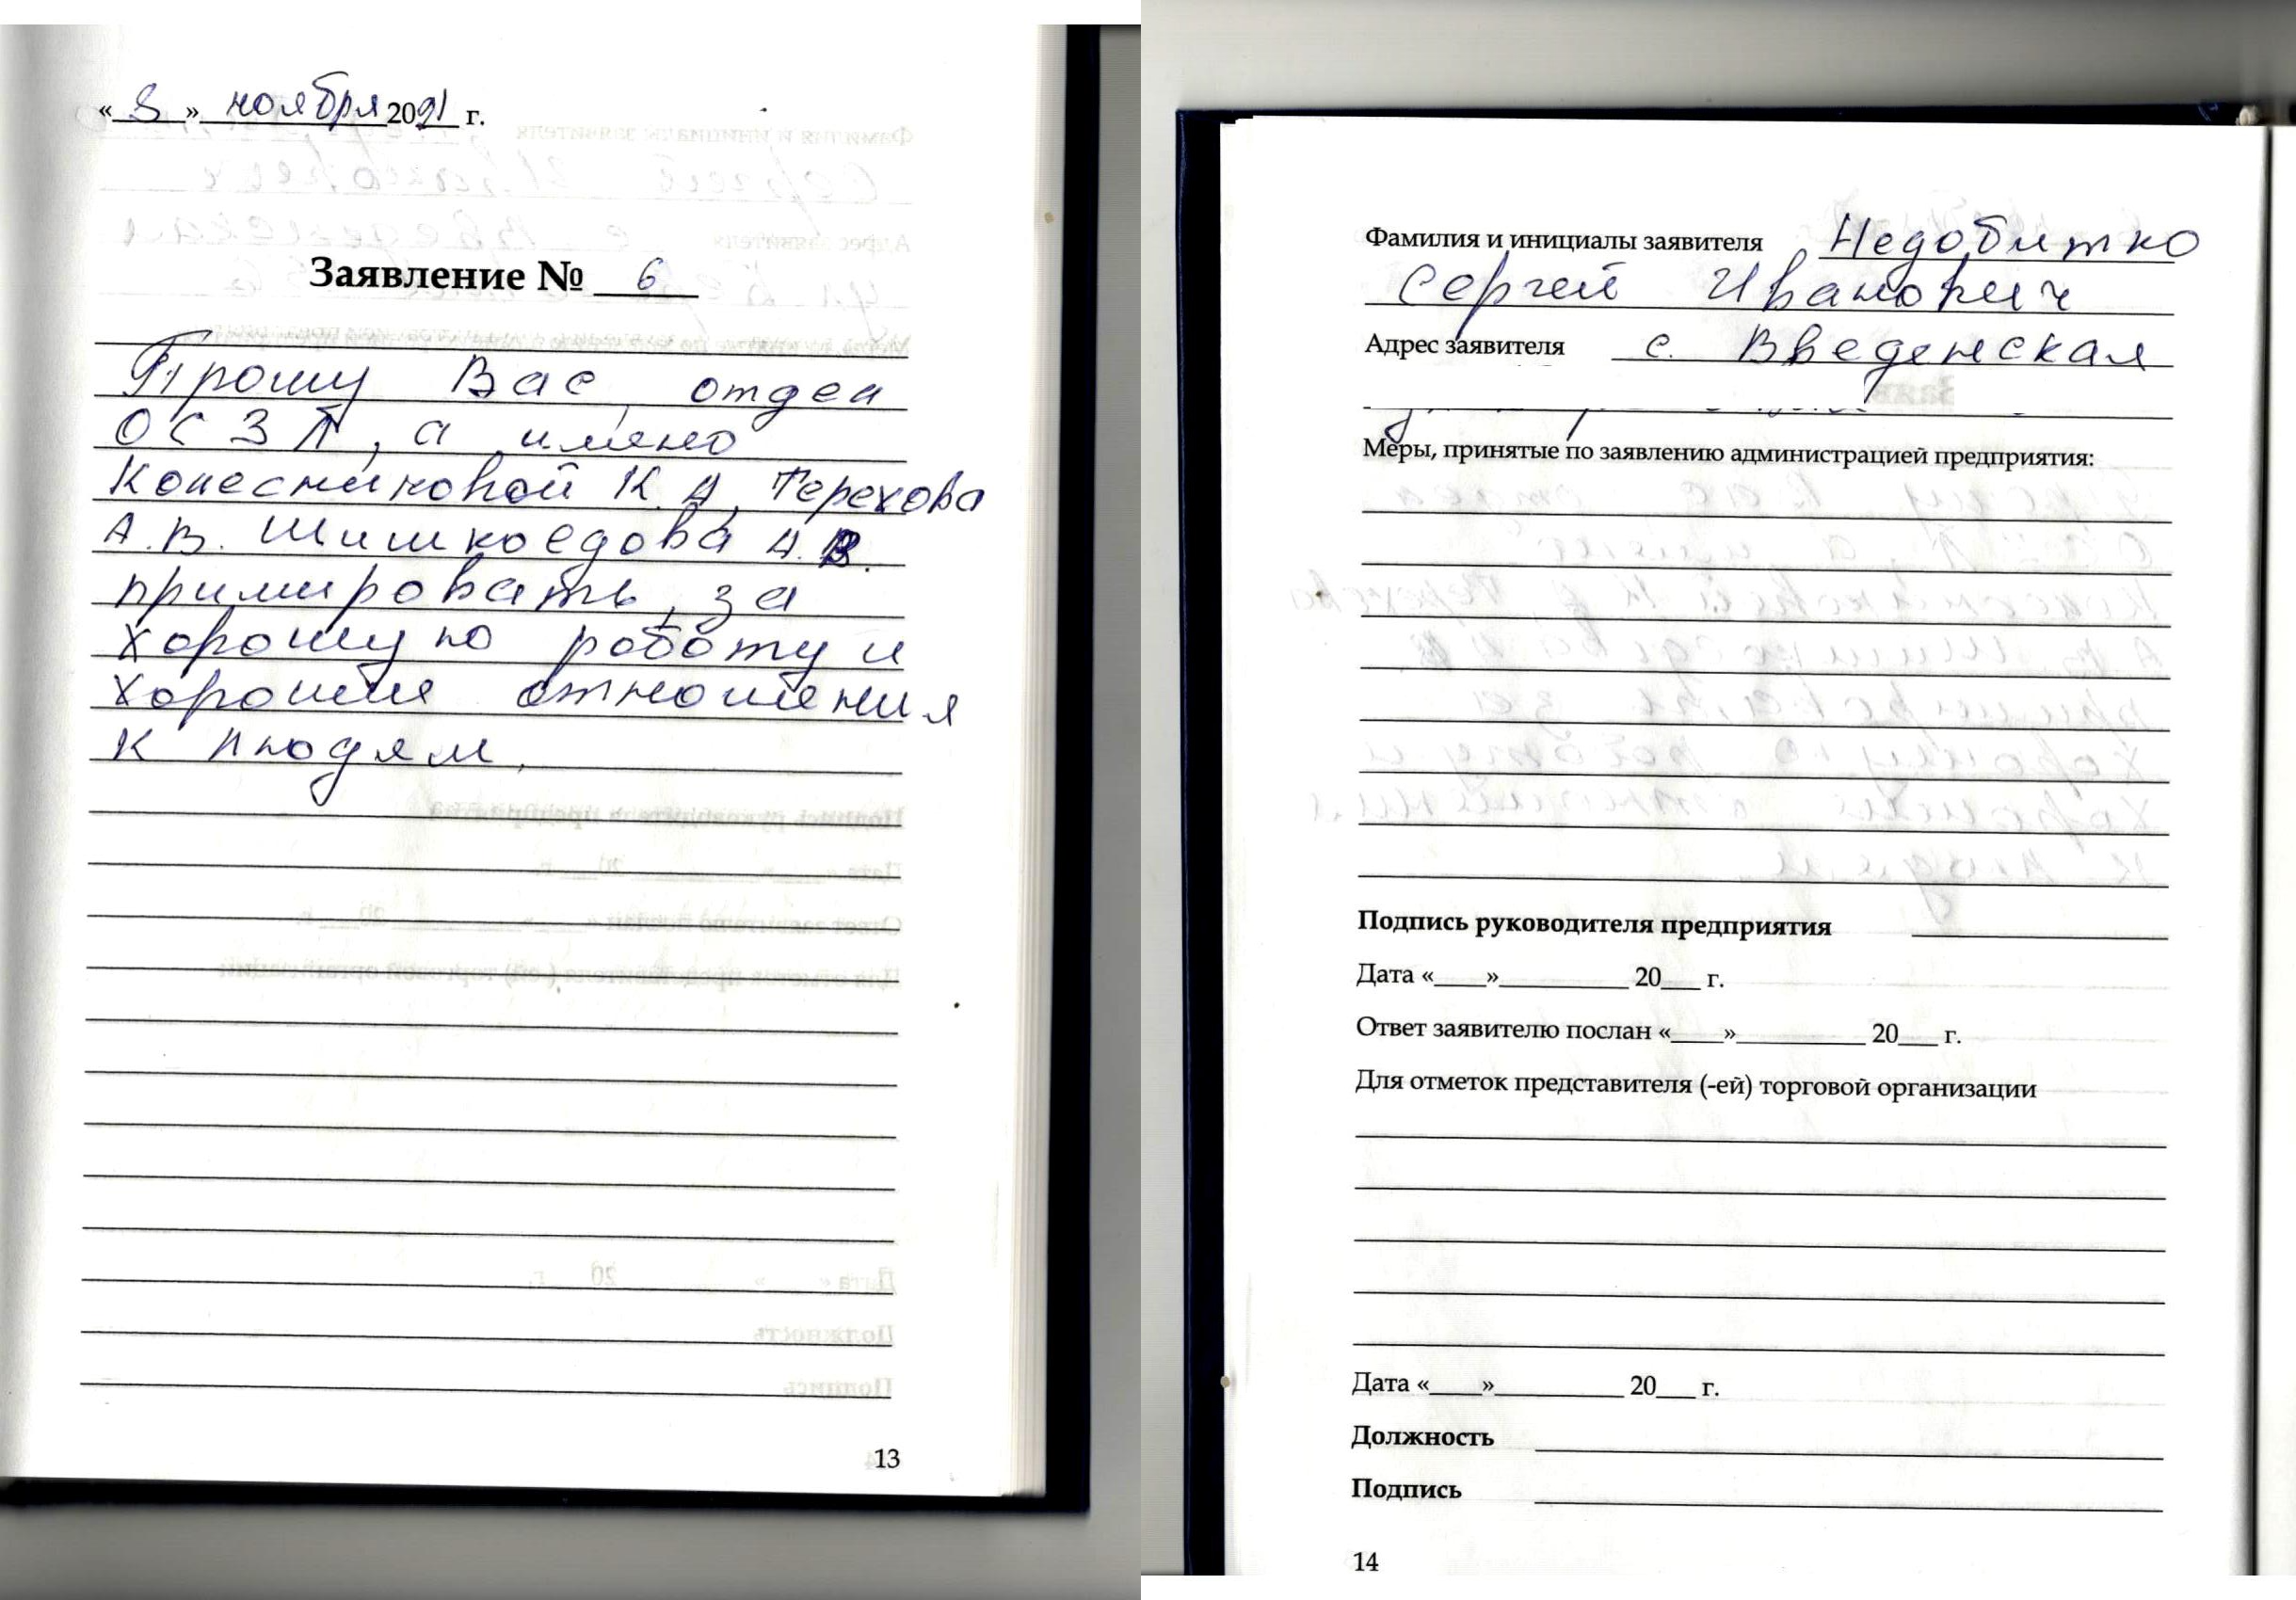 «8» ноября 2021 г.
Заявление № 6
Прошу Вас, отдел
ОСЗП, а имено
Колесниковой К.А, Терехова
А.В. Шишкоедова А.В.
примировать, за
хорошую роботу и
хорошие отношения
к людям,
13
Фамилия и инициалы заявителя Недобитко
Сергей Иванович
Адрес заявителя с. Введенская
Меры, принятые по заявлению администрацией предприятия:
Подпись руководителя предприятия
Дата «____»__________ 20___ г.
Ответ заявителю послан «____»__________ 20___ г.
Для отметок представителя (-ей) торговой организации
Дата «____»__________ 20___ г.
Должность
Подпись
14